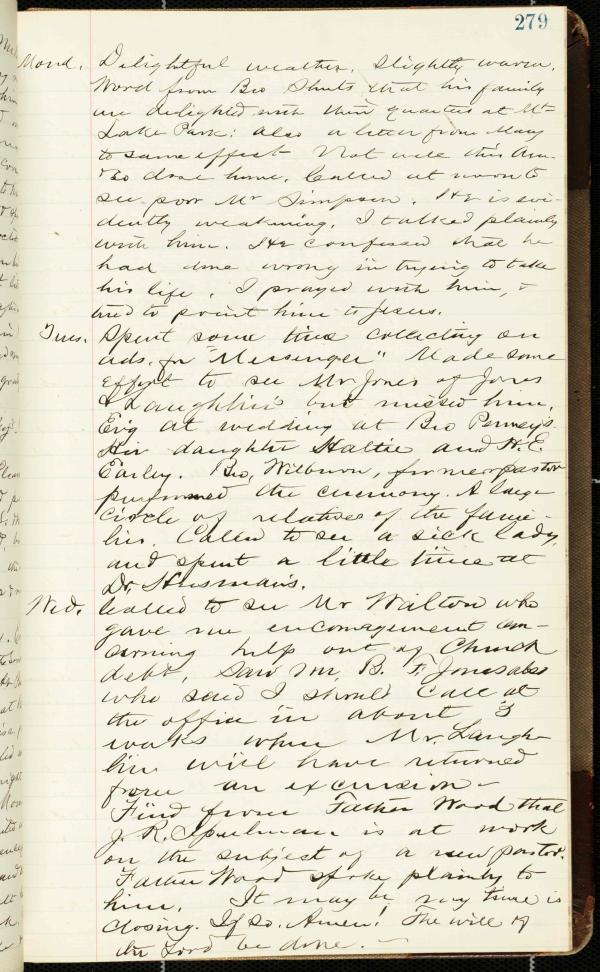 279
Mond. Delightful weather. Slightly warm.
Word from Bro Shuts that his family
are delighted with their quarters at Mt
Lake Park: also a letter from Mary
to same effect Not well this Am.
& so drove home. Called at noon to
see poor Mr Simpson. He is evi-
dently weakening. I talked plainly
with him. He confessed that he
had done wrong in trying to take
his life. I prayed with him, &
tried to point him to Jesus.
Tues. Spent some time collecting on
ads. for "Messenger" Made some
effort to see Mr. Jones of Jones
& Laughlin's but missed him.
Ev'g at wedding at Bro Penney's.
His daughter Hattie and H. E.
Earley. Bro. Wilburn, former pastor
performed the ceremony. A large
circle of relatives of the fami-
lies. Called to see a sick lady,
and spent a little time at
Dr.
Wed. Called to see Mr Walton who
gave me encouragement con-
cerning help out of Church
debt. Saw Mr. B. F. Jones also
who said I should call at
the office in about 3
weeks when Mr. Laugh-
lin will have returned
from an excursion –
Find from Father Wood that
J. R. Spielman is at work
on the subject of a new pastor.
Father Wood spoke plainly to
him. It may be my time is
closing. If so. Amen! The will of
the Lord be done. –